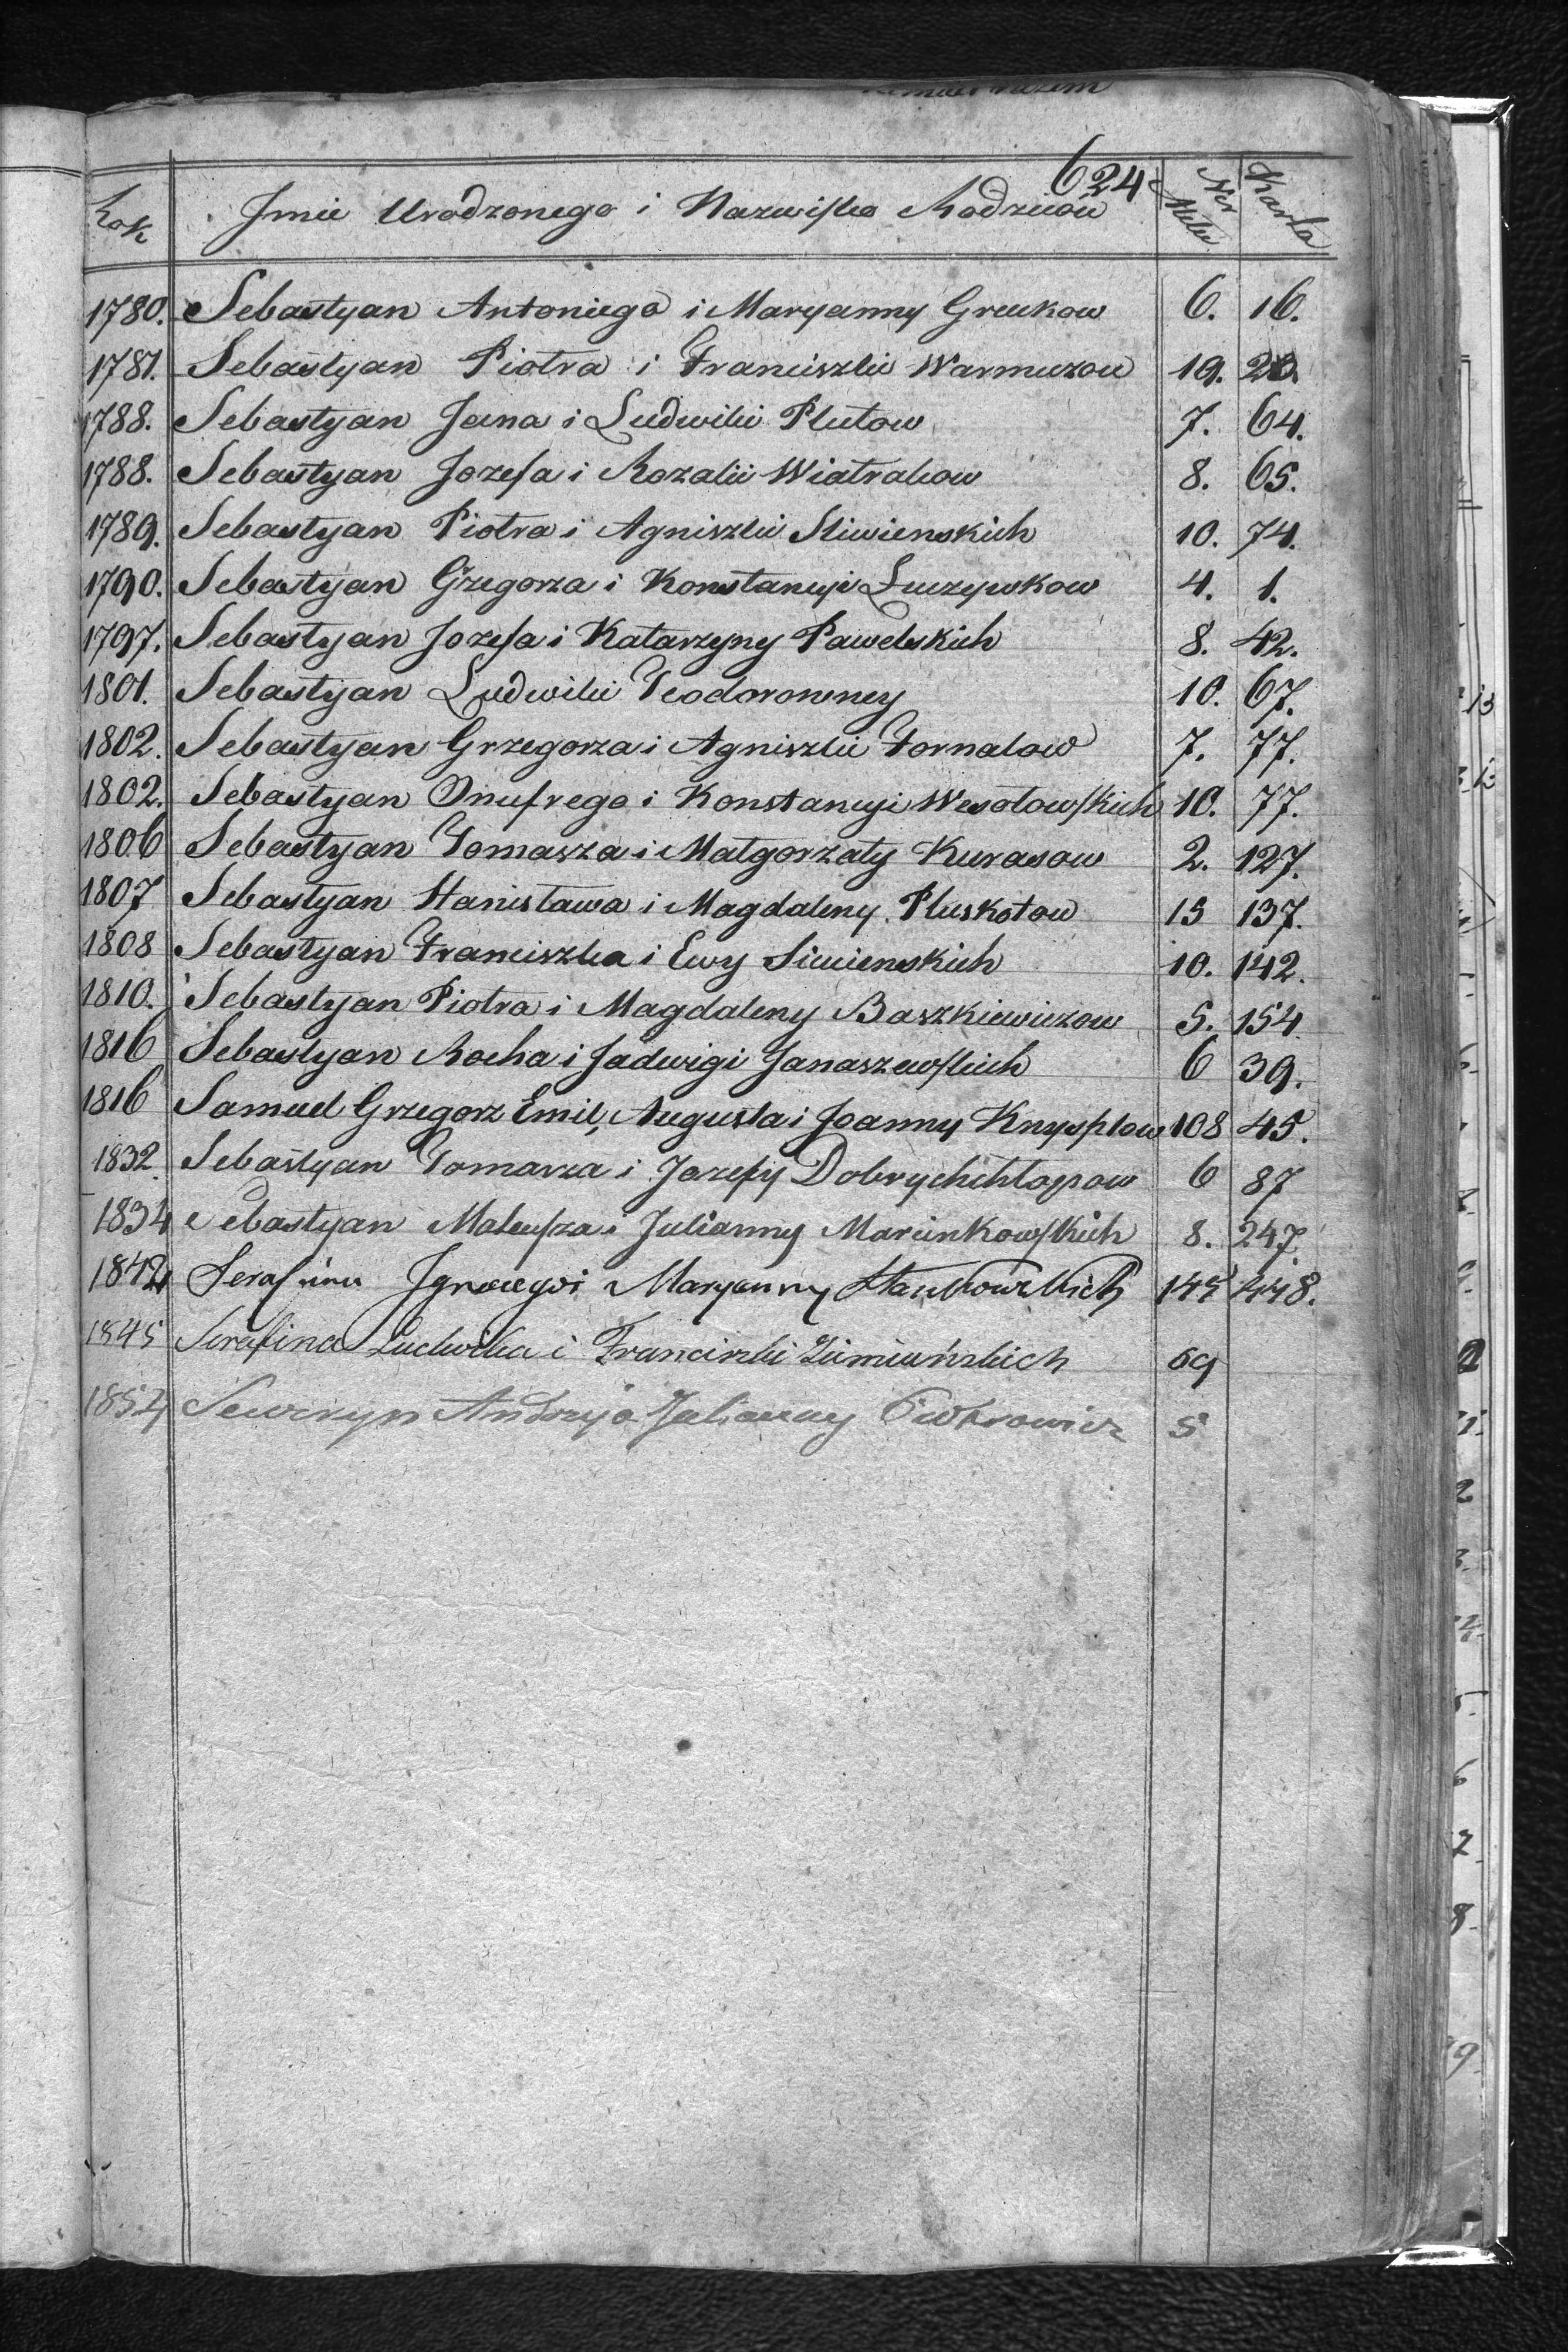 624
Rok Imie Urodzonego i Nazwisko Rodziców Nr Aktu Karta
1780. Sebastyan Antoniego i Maryanny Greckow 6. 16.
1781. Sebastyan Piotra i Franciszki Warmuzow 19. 20.
1788. Sebastyan Jana i Ludwiki Plutow 7. 64.
1788. Sebastyan Jozefa i Rozalii Wiatrakow 8. 65.
1789. Sebastyan Piotra i Agniszki Sliwienskich 10. 74.
1790. Sebastyan Grzegorza i Konstancyi Luczywkow 4. 1.
1797. Sebastyan Jozefa i Katarzyny Pawelskich 8. 42.
1801. Sebastyan Ludwiki Teodorowney 10. 67.
1802. Sebastyan Grzegorza i Agniszki Fornalow 7. 77.
1802. Sebastyan Onufrego i Konstancyi Wesołowskich 10. 77.
1806 Sebastyan Tomasza i Małgorzaty Kurasow 2. 127.
1807 Sebastyan Stanisława i Magdaleny Pluskotow 13 137.
1808 Sebastyan Franciszka i Ewy Siwienskich 10. 142.
1810. Sebastyan Piotra i Magdaleny Baszkiewiczow 5. 154
1816 Sebastyan Rocha i Jadwigi Janaszewskich 6 39.
1816 Samuel Grzegorz Emil, Augusta i Joanny Knysplow 108 45.
1832. Sebastyan Tomasza i Jozefy Dobrychchłopow 6 87
1834 Sebastyan Mateusza i Julianny Marcinkowskich 8. 247
1842 Serafina Ignacego i Maryanny 448.
1845 Serafina Ludwika i Franciszki 69
1854 Seweryn Andrzeja Julianny 5